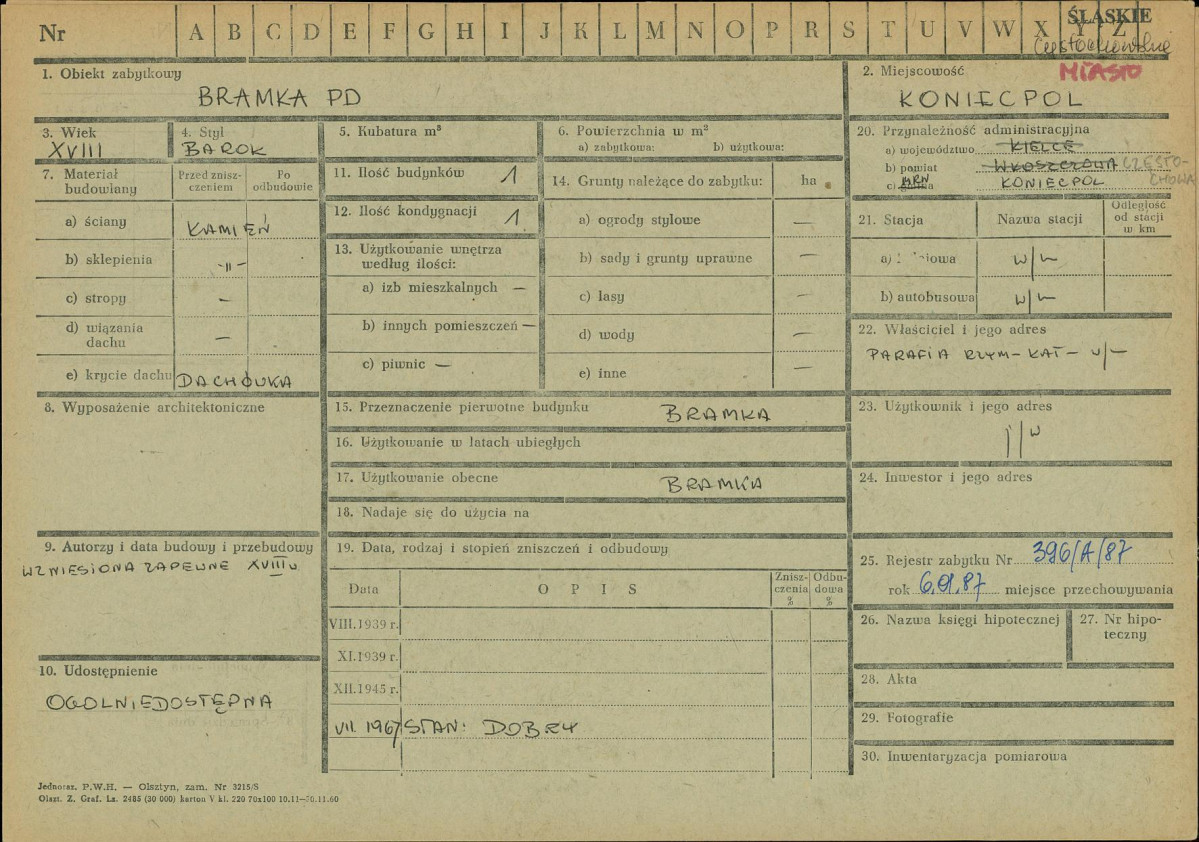 Nr A B C D E F G H I J K L M N O P R S T U V W X Y Z
ŚLĄSKIE
Częstochowskie
MIASTO
1. Obiekt zabytkowy
BRAMKA PD
2. Miejscowość
KONIECPOL
3. Wiek
XVIII
4. Styl
BAROK
5. Kubatura m³
6. Powierzchnia w m²
a) zabytkowa: b) użytkowa:
7. Materiał budowlany
Przed zniszczeniem
Po odbudowie
a) ściany KAMIEŃ
b) sklepienia -〃-
c) stropy —
d) wiązania dachu —
e) krycie dachu DACHÓWKA
8. Wyposażenie architektoniczne
9. Autorzy i data budowy i przebudowy
WZNIESIONA ZAPEWNE XVIII w
10. Udostępnienie
OGOLNIEDOSTĘPNA
11. Ilość budynków 1
12. Ilość kondygnacji 1.
13. Użytkowanie wnętrza
według ilości:
a) izb mieszkalnych —
b) innych pomieszczeń —
c) piwnic —
14. Grunty należące do zabytku: ha
a) ogrody stylowe —
b) sady i grunty uprawne —
c) lasy —
d) wody —
e) inne —
15. Przeznaczenie pierwotne budynku BRAMKA
16. Użytkowanie w latach ubiegłych
17. Użytkowanie obecne BRAMKA
18. Nadaje się do użycia na
19. Data, rodzaj i stopień zniszczeń i odbudowy
Data OPIS Zniszczenia % Odbudowa %
VIII.1939 r.
XI.1939 r.
XII.1945 r.
VII. 1967 STAN: DOBRY
20. Przynależność administracyjna
a) województwo KIELCE
b) powiat WŁOSZCZOWA CZĘSTOCHOWA
c) MRN KONIECPOL
21. Stacja Nazwa stacji Odległość od stacji w km
a) w/—
b) autobusowa w/—
22. Właściciel i jego adres
PARAFIA RZYM-KAT – w/—
23. Użytkownik i jego adres
24. Inwestor i jego adres
25. Rejestr zabytku Nr 396/A/87
rok 6.01.87 miejsce przechowywania
26. Nazwa księgi hipotecznej
27. Nr hipoteczny
28. Akta
29. Fotografie
30. Inwentaryzacja pomiarowa
Jednoraz. P.W.H. — Olsztyn, zam. Nr 3215/S
Olszt. Z. Graf. Lz. 2485 (30 000) karton V kl. 220 70x100 10.11—30.11.60